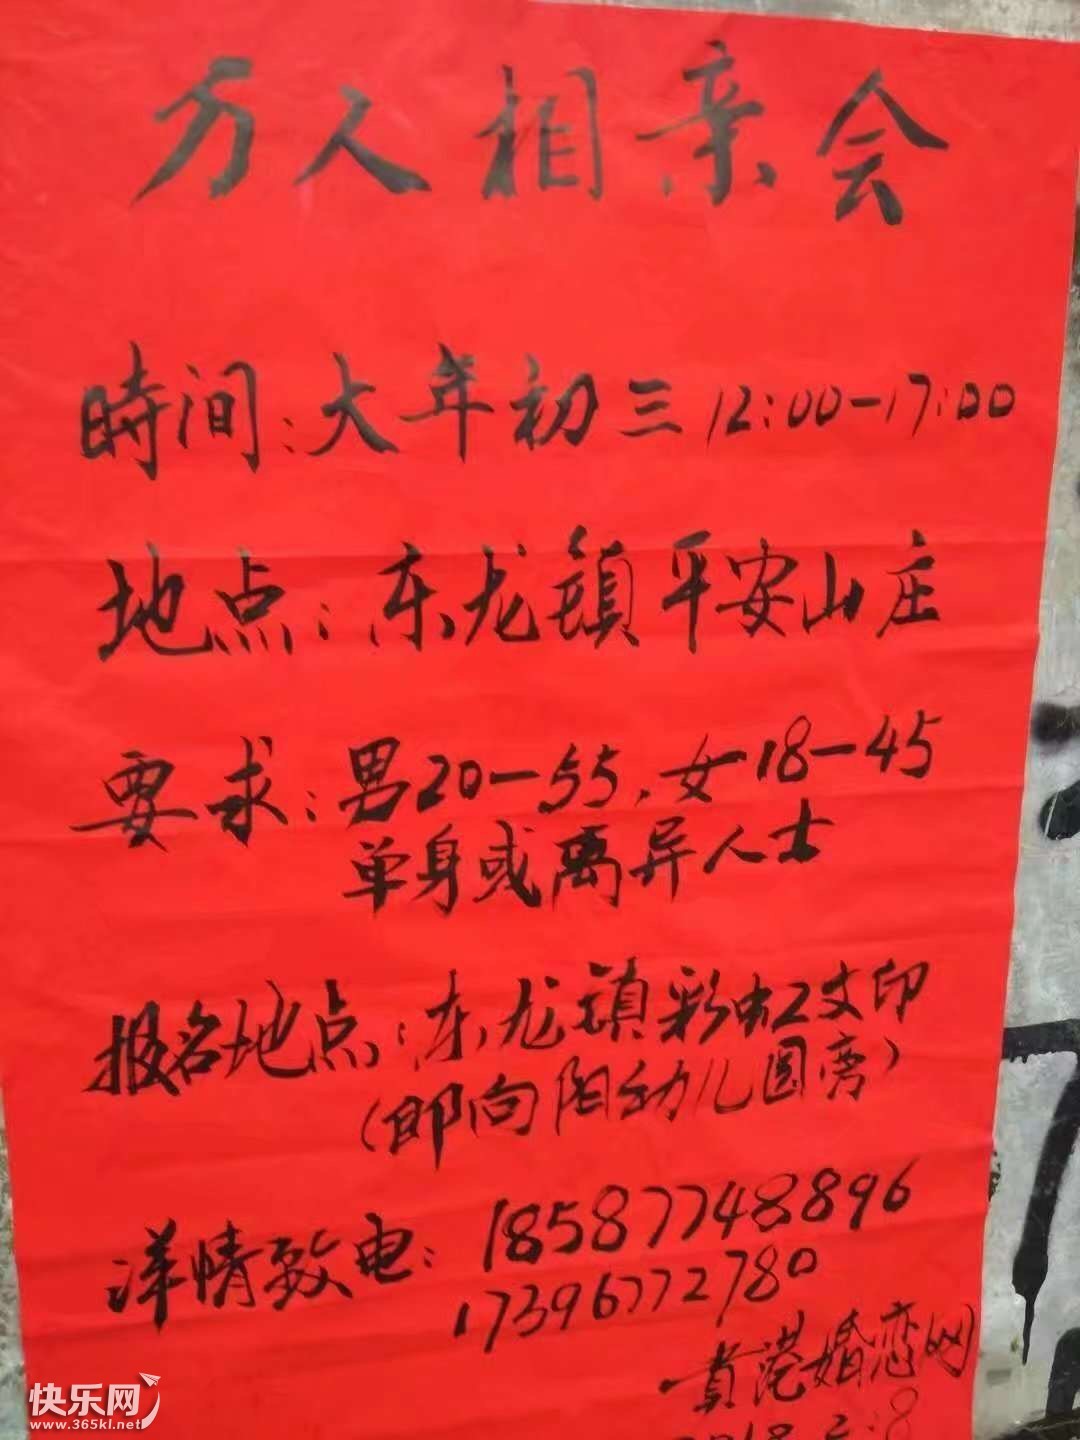 万人相亲会
時间:大年初三12:00-17:00
地点:东龙镇平安山庄
要求:男20-55,女18-45
单身或离异人士
报名地点:东龙镇彩虹文印
(即向阳幼儿园旁)
详情致电:18587748896
17396772780
贵港婚恋网
2018.2.8
快乐网
www.365kl.net